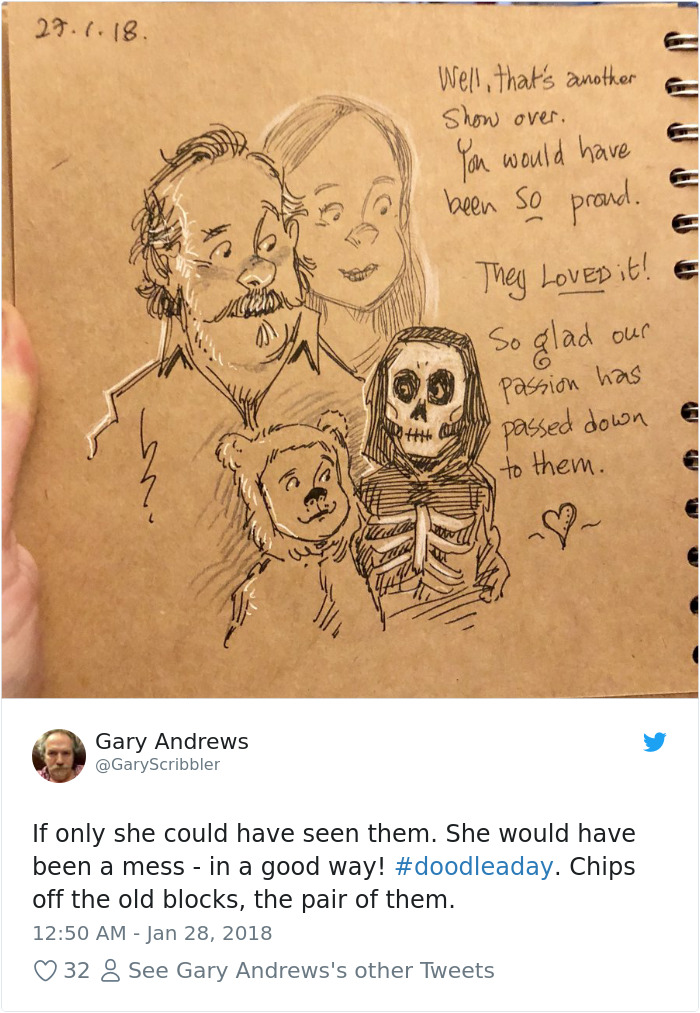 27.1.18.
Well, that's another
Show over.
You would have
been SO proud.
They LOVED it!
So glad our
passion has
passed down
to them.
Gary Andrews
@GaryScribbler
If only she could have seen them. She would have
been a mess - in a good way! #doodleaday. Chips
off the old blocks, the pair of them.
12:50 AM - Jan 28, 2018
32 See Gary Andrews's other Tweets